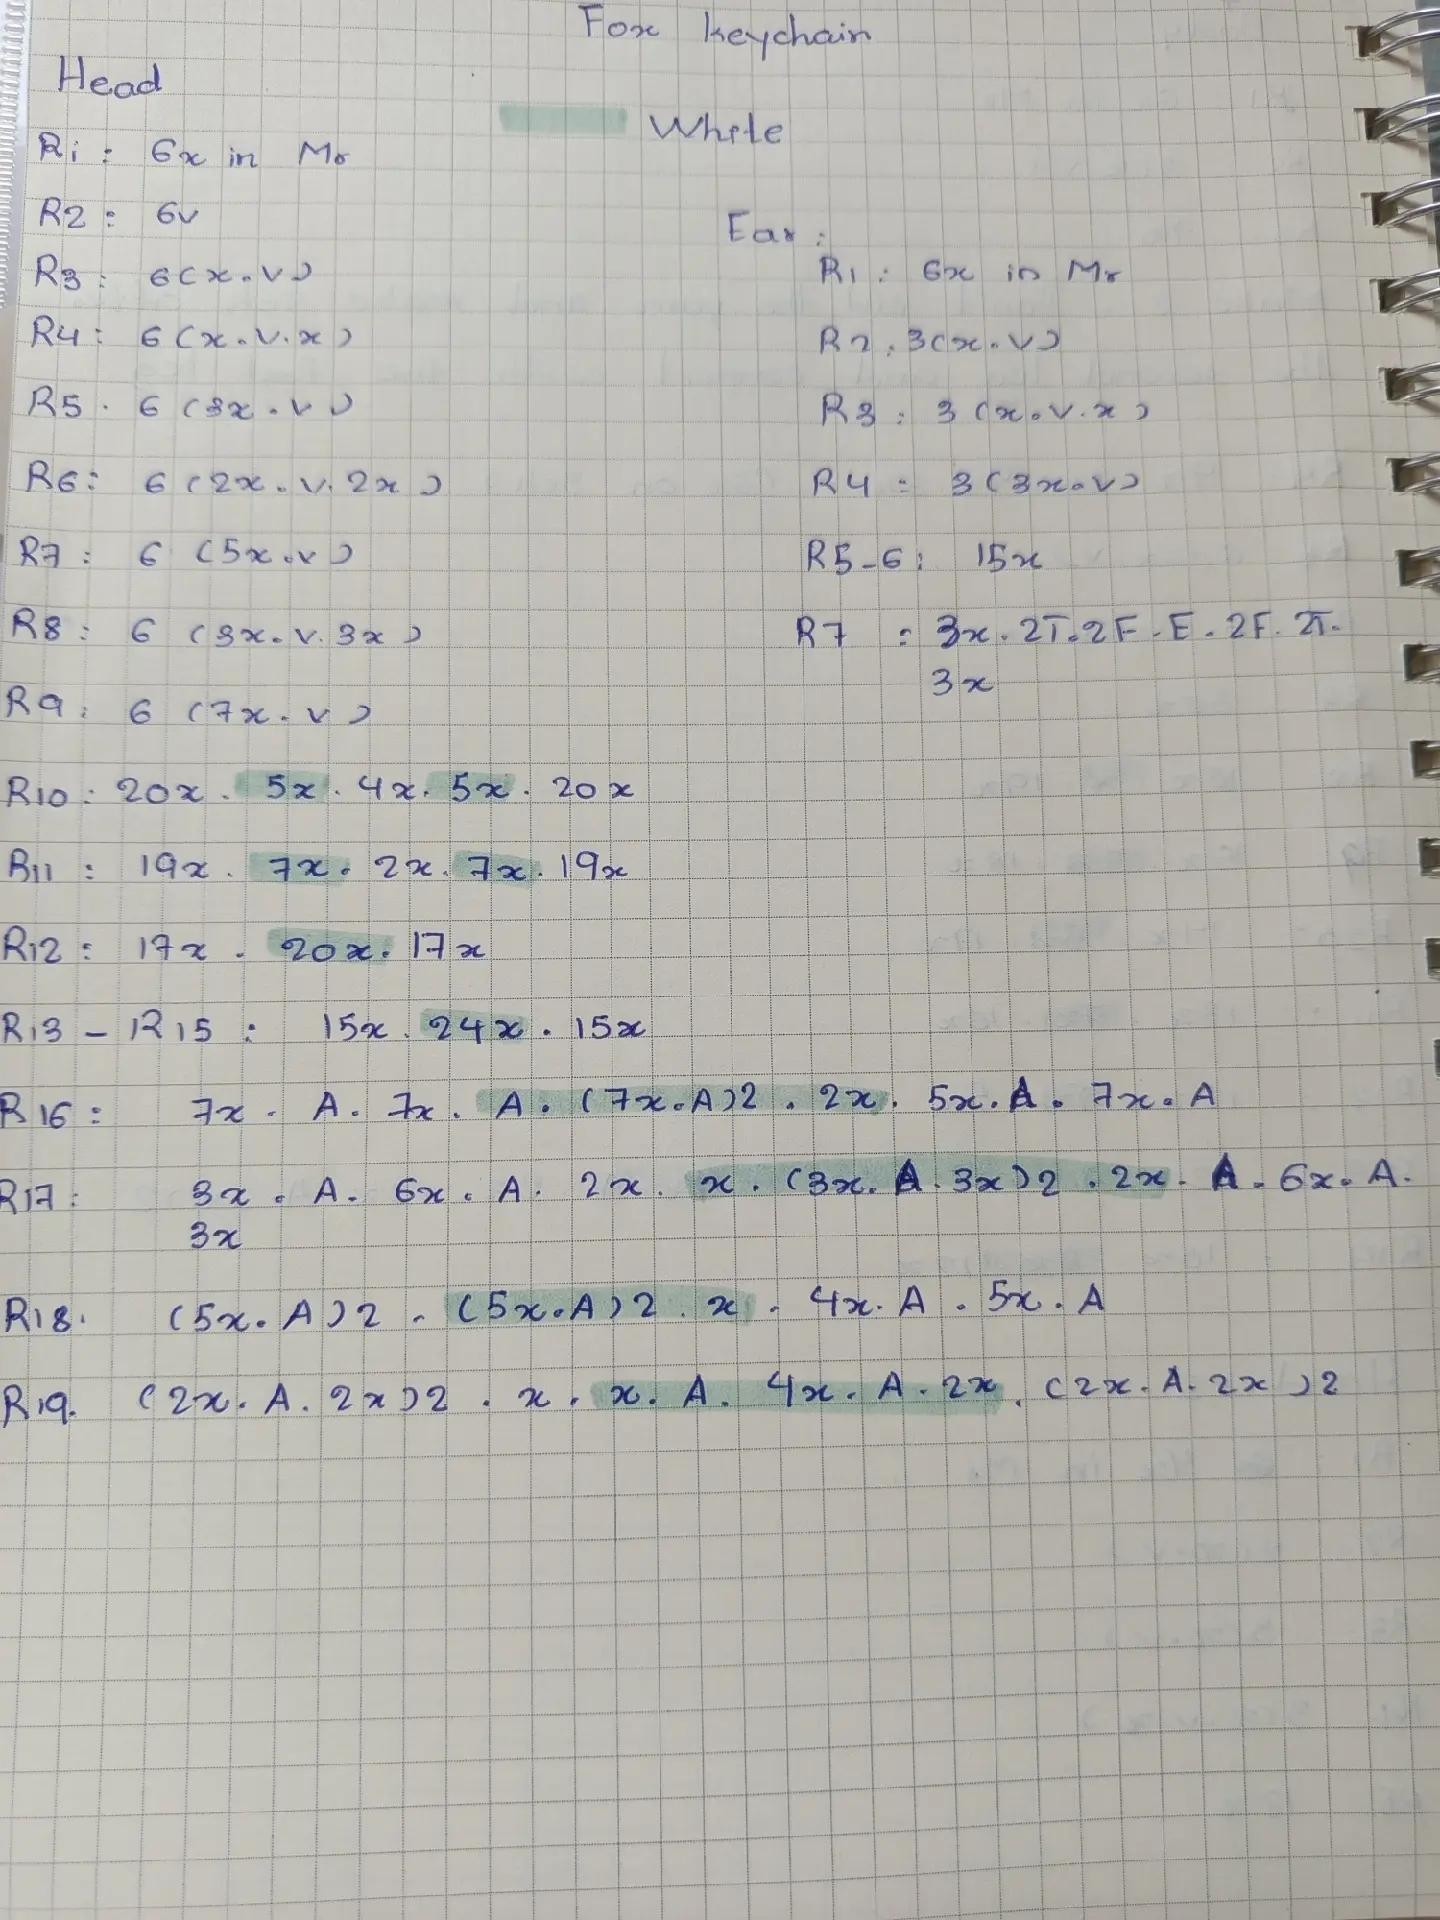 Fox keychain
Head
White
R1: 6x in Mr
R2: 6v
R3: 6(x.v)
R4: 6(x.v.x)
R5. 6(3x.v)
R6: 6(2x.v.2x)
R7: 6(5x.v)
R8: 6(3x.v.3x)
R9: 6(7x.v)
Ear:
R1: 6x in Mr
R2: 3(x.v)
R3: 3(x.v.x)
R4: 3(3x.v)
R5-6: 15x
R7: 3x.2T.2F.E.2F.2T.
3x
R10: 20x. 5x. 4x. 5x. 20x
R11: 19x. 7x. 2x. 7x. 19x
R12: 17x. 20x. 17x
R13 - R15: 15x. 24x. 15x
R16: 7x. A. 7x. A. (7x.A)2. 2x. 5x. A. 7x. A
R17: 3x. A. 6x. A. 2x. x. (3x. A. 3x)2. 2x. A. 6x. A.
3x
R18. (5x. A)2. (5x.A)2. x. 4x. A. 5x. A
R19. (2x. A. 2x)2. x. x. A. 4x. A. 2x. (2x. A. 2x)2